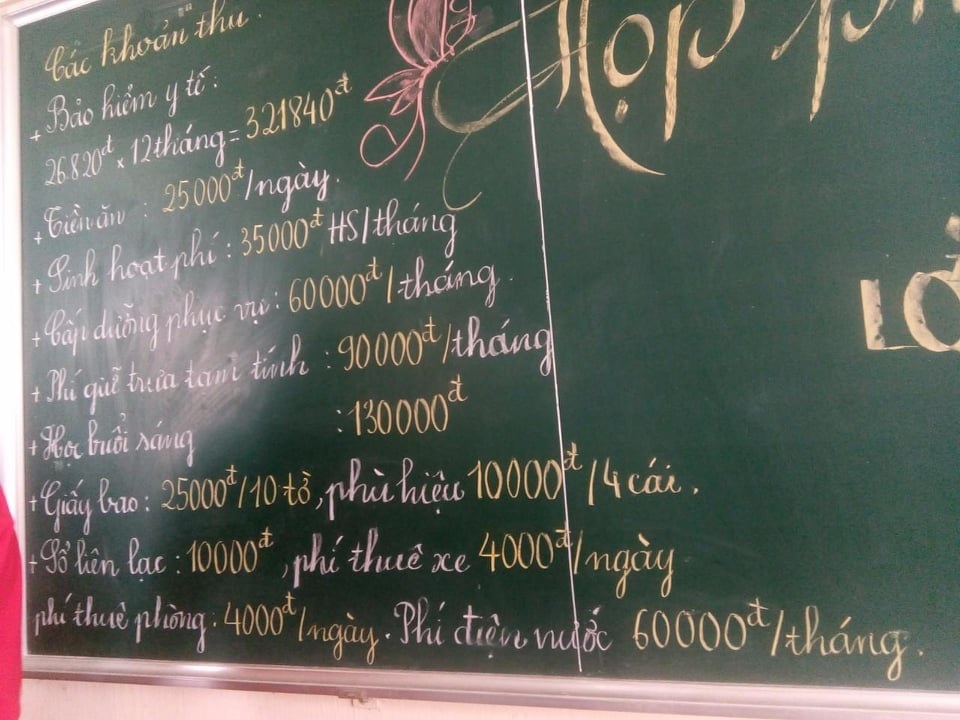 Các khoản thu.
+ Bảo hiểm y tế:
26.820đ x 12 tháng = 321840đ
+ Tiền ăn : 25000đ/ngày.
+ Sinh hoạt phí : 35000đ HS/tháng
+ Cấp dưỡng phục vụ : 60000đ/tháng.
+ Phí giữ trưa tạm tính : 90000đ/tháng
+ Học buổi sáng : 130000đ
+ Giấy bao : 25000đ/10 tờ, phù hiệu 10000đ/4 cái.
+ Sổ liên lạc : 10000đ, phí thuê xe 4000đ/ngày
phí thuê phòng. 4000đ/ngày. Phí điện nước 60000đ/tháng.
Họp